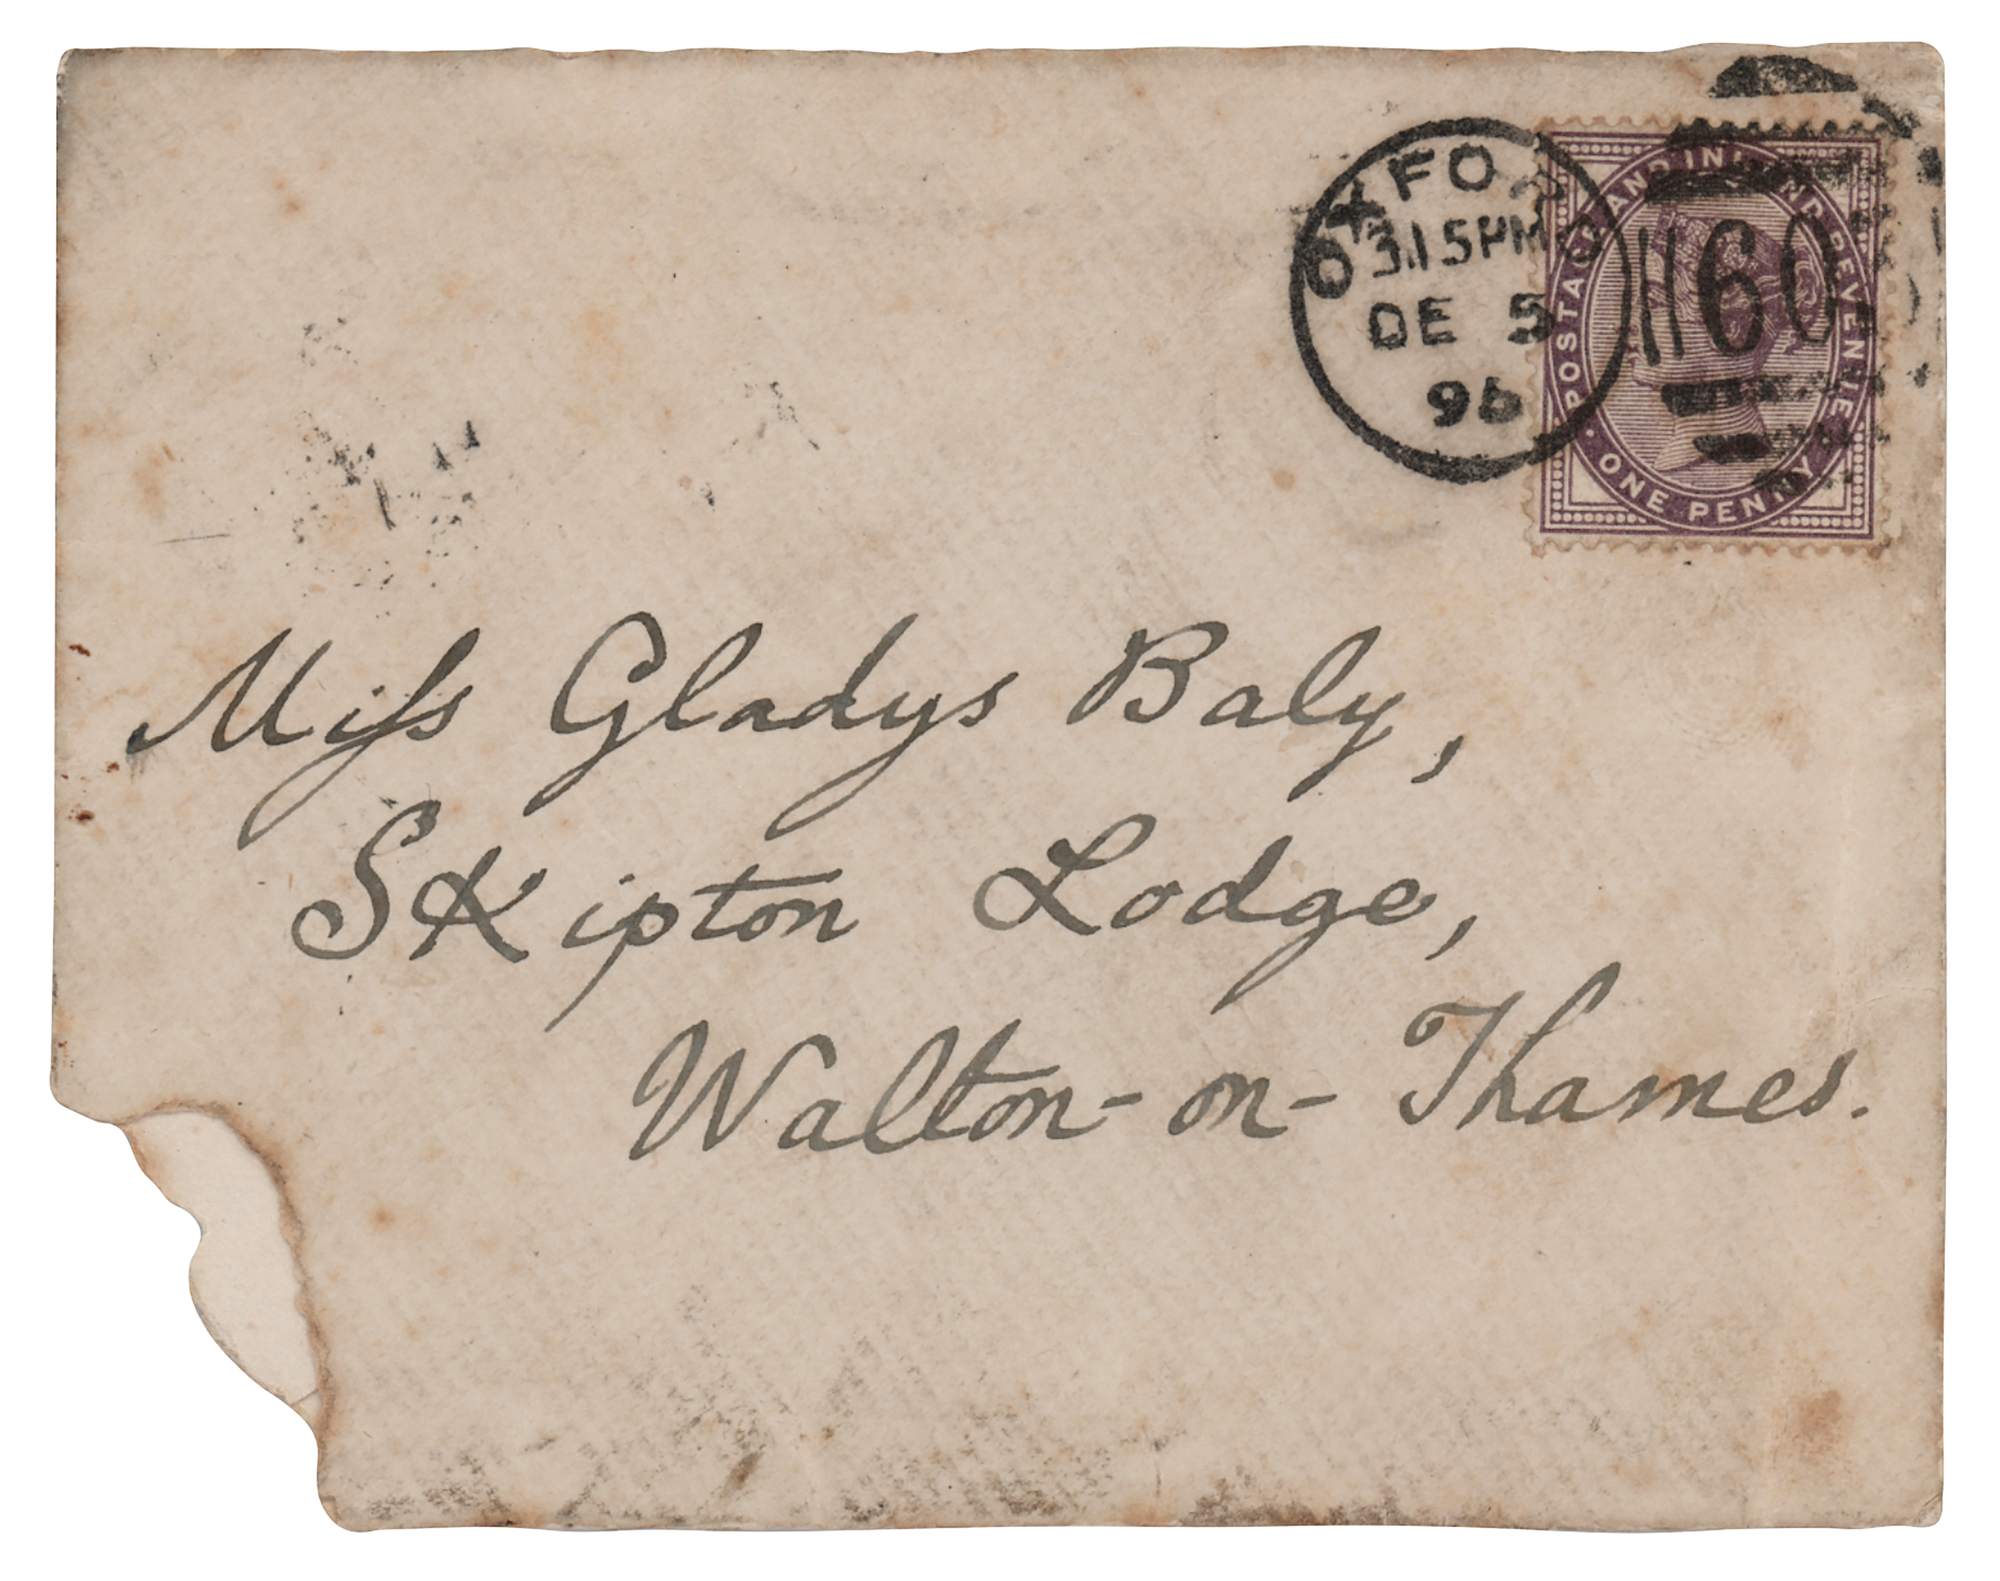 OXFORD
3.15PM
DE 5
96
POSTAGE AND INLAND REVENUE
ONE PENNY
603
Miss Gladys Baly,
Skipton Lodge,
Walton-on-Thames.